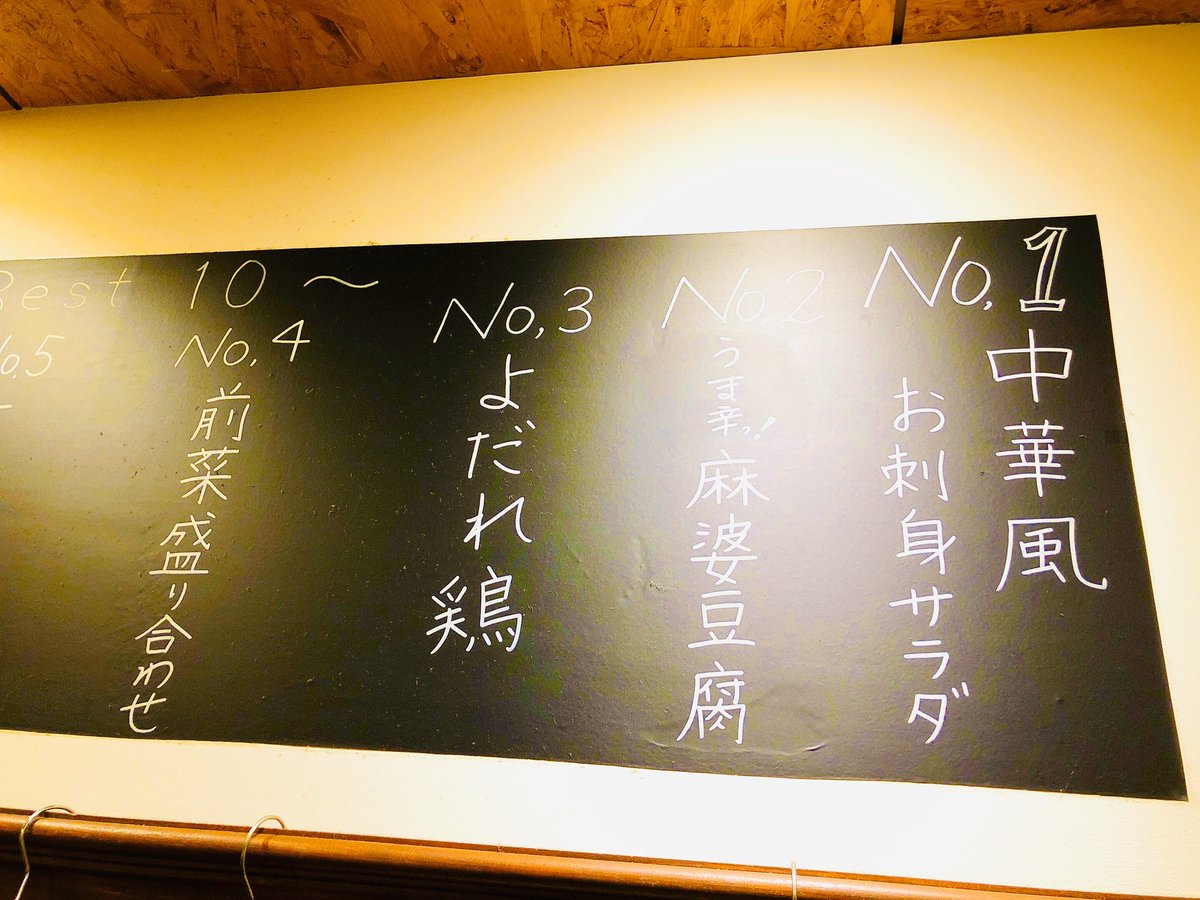 No,1
中華風
お刺身サラダ
No,2
うま辛っ!
麻婆豆腐
No,3
よだれ鶏
Best 10 〜
No,4
前菜盛り合わせ
No,5